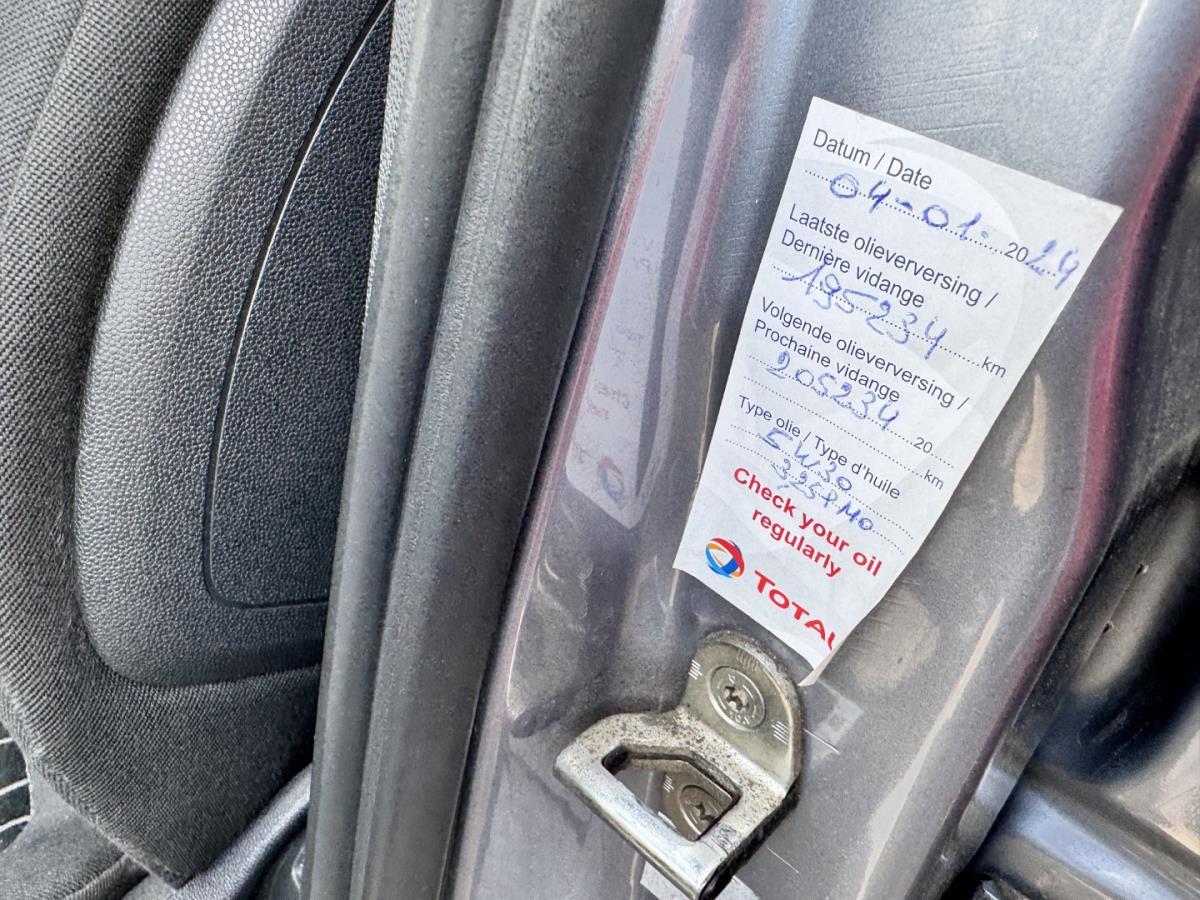 Datum / Date
04-01-2024
Laatste olieverversing /
Dernière vidange
195234 km
Volgende olieverversing /
Prochaine vidange
205234 20
km
Type olie / Type d'huile
5W30
Check your oil
regularly
TOTAL